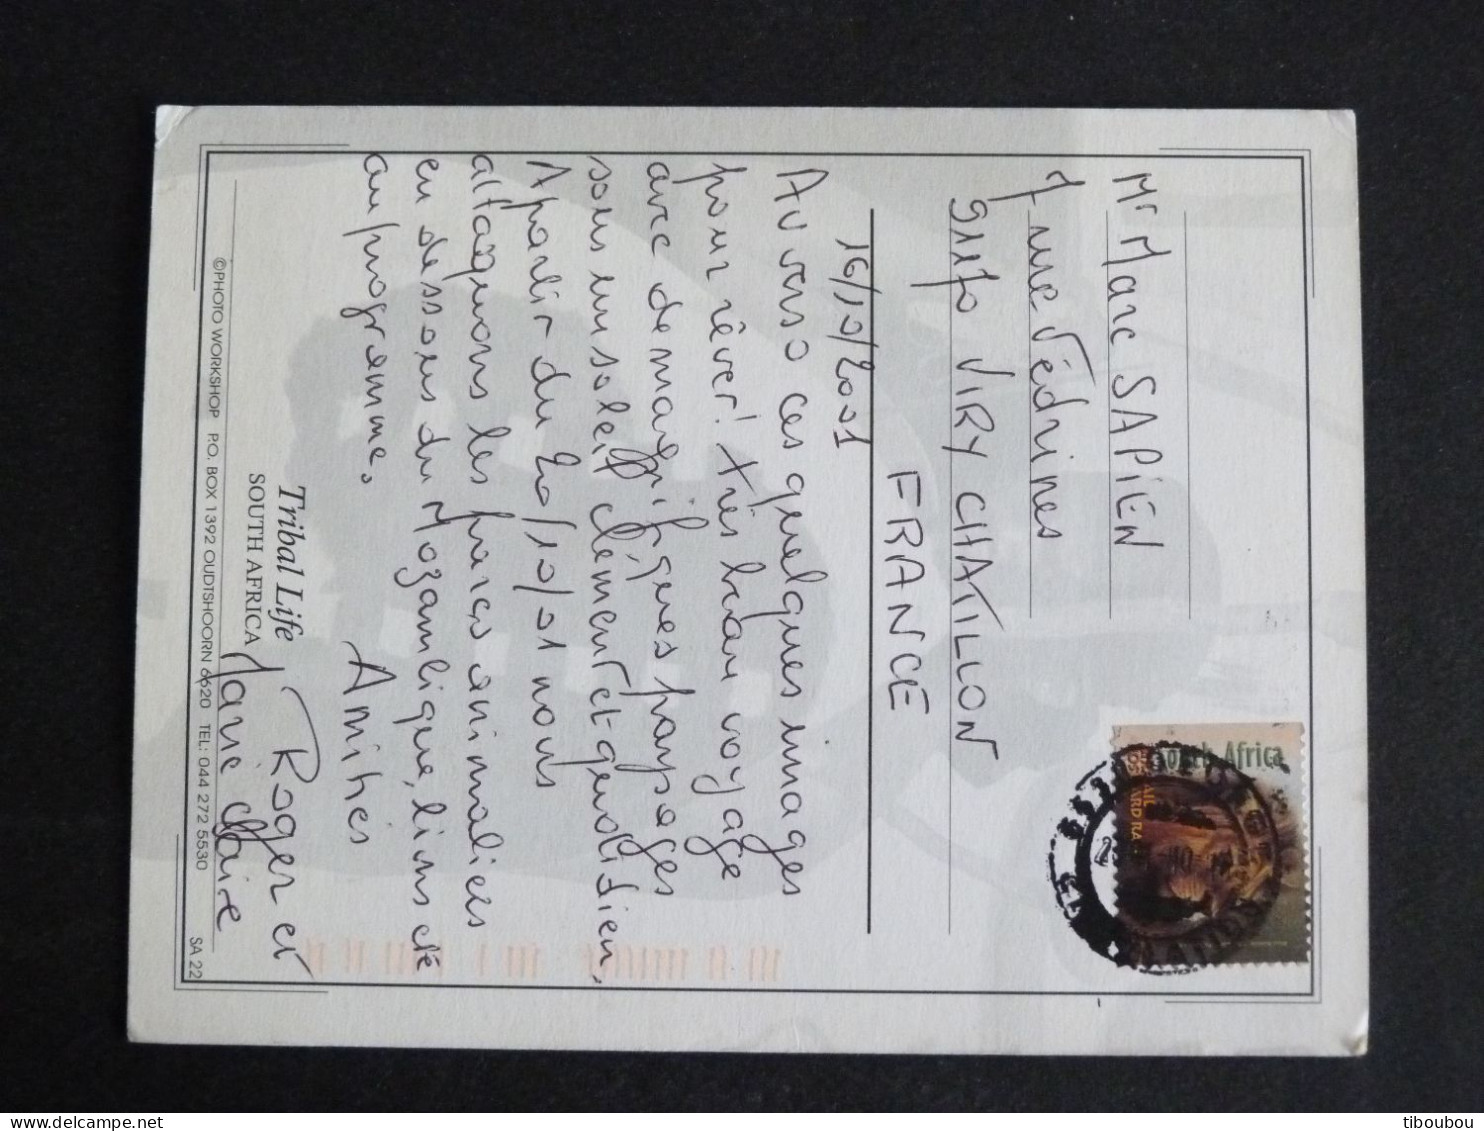 Mr Marc SAPIEN
7 rue Védrines
91170 VIRY CHATILLON
FRANCE
South Africa
16/10/2001
Au verso ces quelques images
pour rêver! très beau voyage
avec de magnifiques paysages
sous un soleil clément et quotidien,
A partir du 20/10/01 nous
attaquons les parcs animaliers
en dessous du Mozambique, lions etc
au programme.
Amitiés
Roger et
Marie Claire
Tribal Life
SOUTH AFRICA
©PHOTO WORKSHOP P.O. BOX 1392 OUDTSHOORN 6620 TEL: 044 272 5530
SA 22
tiboubou